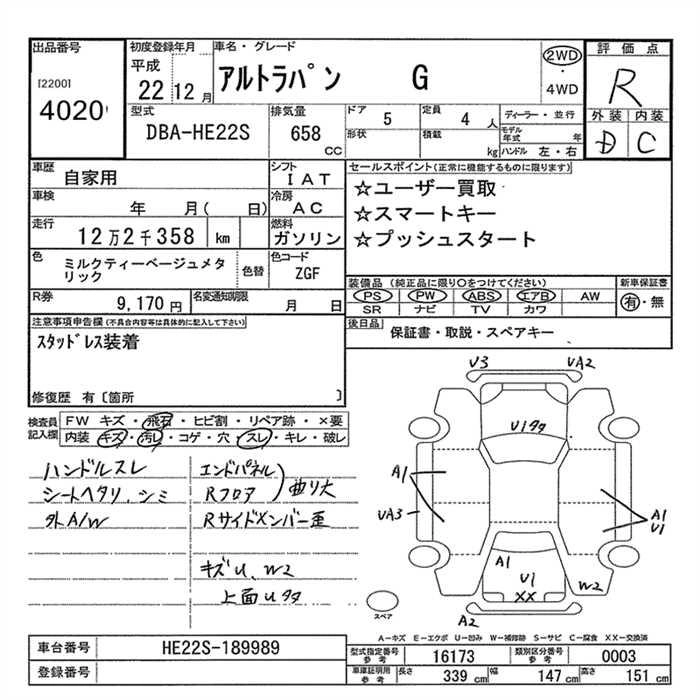 出品番号
[2200]
4020
初度登録年月
平成
22 12 月
車名・グレード
アルトラパン G
2WD
・
4WD
評価点
R
外装 内装
D C
型式
DBA-HE22S
排気量
658 CC
ドア 5
形状
定員 4 人
積載 kg
ディーラー・並行
モデル年式 年
ハンドル 左・右
車歴
自家用
シフト
IAT
車検
年 月( 日)
冷房
AC
走行
12万2千358 km
燃料
ガソリン
色
ミルクティーベージュメタリック
色替
色コード
ZGF
R券
9,170 円
名変通知期限
月 日
セールスポイント(正常に機能するものに限ります)
☆ユーザー買取
☆スマートキー
☆プッシュスタート
装備品 (純正品に限り○をつけてください)
PS PW ABS エアB AW
SR ナビ TV カワ
新車保証書
有・無
後日品
保証書・取説・スペアキー
注意事項申告欄(不具合内容等は具体的に記入して下さい)
スタッドレス装着
修復歴 有〔箇所 〕
検査員
記入欄
FW キズ・飛石・ヒビ割・リペア跡・×要
内装 キズ・汚レ・コゲ・穴・スレ・キレ・破レ
ハンドルスレ
シートヘタリ、シミ
外A/W
エンドパネル
Rフロア
曲り大
Rサイドメンバー歪
キズU、W2
上面Uタタ
V3
UA2
U1タタ
A1
UA3
A1
U1
A1
U1
XX
W2
A2
スペア
A-キズ E-エクボ U-凹み W-補修跡 S-サビ C-腐食 XX-交換済
車台番号
HE22S-189989
登録番号
型式指定番号
参考
16173
類別区分番号
参考
0003
車庫証明用
参考
長さ 339 cm
幅 147 cm
高さ 151 cm